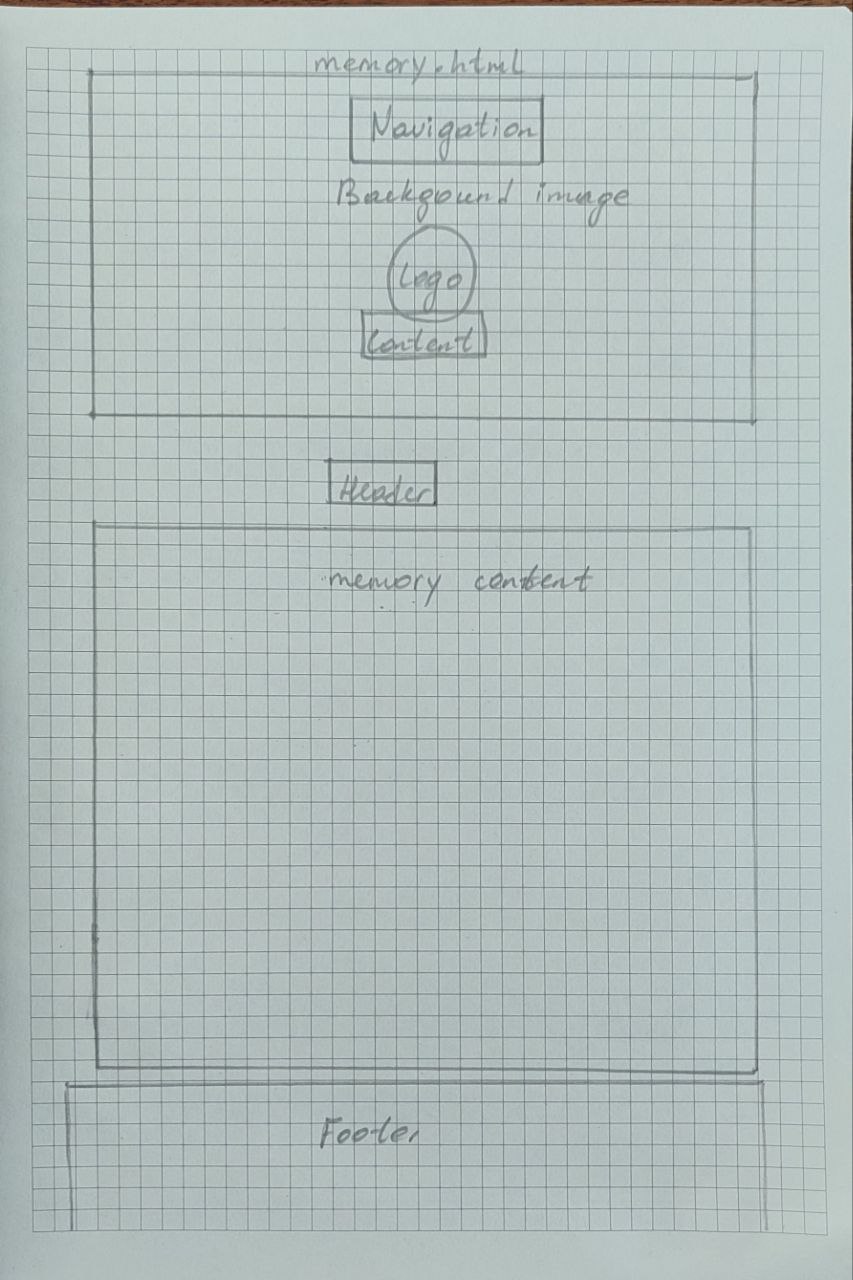 memory.html
Navigation
Backgound image
Logo
Content
Header
memory content
Footer